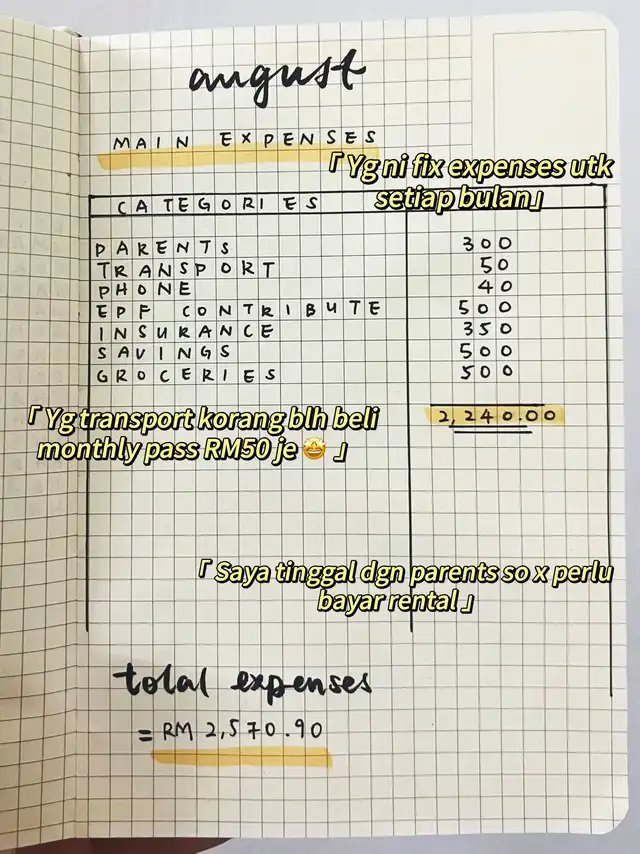 august
MAIN EXPENSES
「 Yg ni fix expenses utk
setiap bulan」
CATEGORIES
PARENTS 300
TRANSPORT 50
PHONE 40
EPF CONTRIBUTE 500
INSURANCE 350
SAVINGS 500
GROCERIES 500
2,240.00
「 Yg transport korang blh beli
monthly pass RM50 je 🤩 」
「 Saya tinggal dgn parents so x perlu
bayar rental」
total expenses
= RM 2,570.90